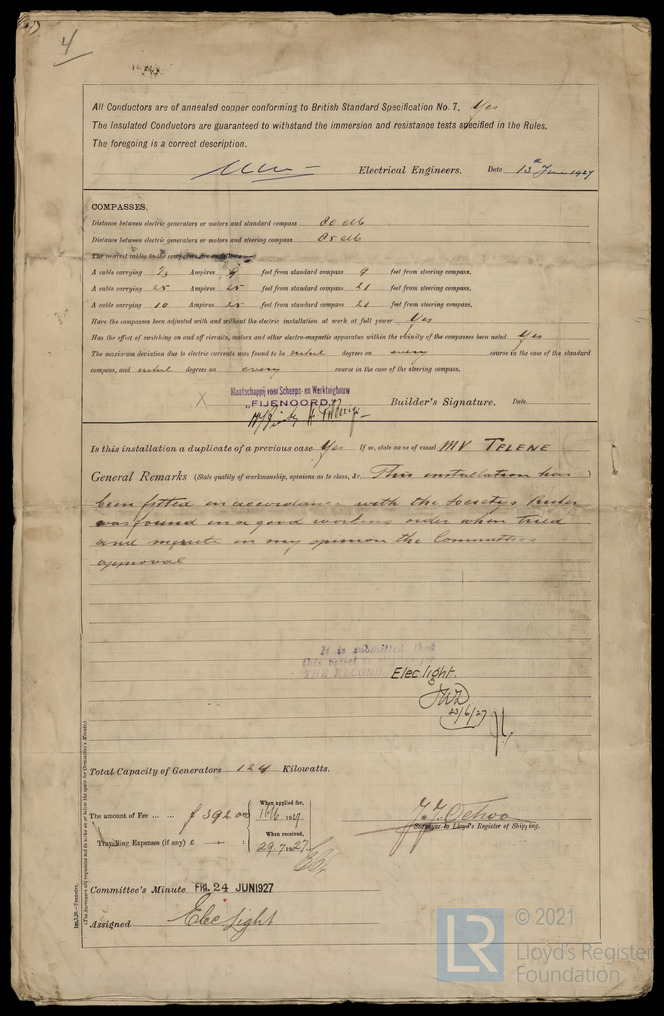 4
All Conductors are of annealed copper conforming to British Standard Specification No. 7. Yes
The Insulated Conductors are guaranteed to withstand the immersion and resistance tests specified in the Rules.
The foregoing is a correct description.
Electrical Engineers. Date 13th June 1927
COMPASSES.
Distance between electric generators or motors and standard compass
Distance between electric generators or motors and steering compass
The nearest cables to the compasses are as follows:—
A cable carrying Ampères feet from standard compass 9 feet from steering compass.
A cable carrying 25 Ampères 25 feet from standard compass 21 feet from steering compass.
A cable carrying 10 Ampères 25 feet from standard compass 21 feet from steering compass.
Have the compasses been adjusted with and without the electric installation at work at full power Yes
Has the effect of switching on and off circuits, motors and other electro-magnetic apparatus within the vicinity of the compasses been noted Yes
The maximum deviation due to electric currents was found to be degrees on every course in the case of the standard
compass, and degrees on every course in the case of the steering compass.
Maatschappij voor Scheeps- en Werktuigbouw
"FIJENOORD"
X Builder's Signature. Date
Is this installation a duplicate of a previous case Yes If so, state name of vessel MV TELENE
General Remarks (State quality of workmanship, opinions as to class, &c. This installation has )
been fitted in accordance with the Society's Rules
was found in a good working order when tried
and merits in my opinion the Committee's
approval
It is submitted that
this vessel is eligible for
THE RECORD. Elec. light.
JWD
23/6/27
Total Capacity of Generators 124 Kilowatts.
The amount of Fee ... ... ƒ 392.00
When applied for,
16/6 1927
When received,
29.7.1927
Travelling Expenses (if any) £ — :
Surveyor to Lloyd's Register of Shipping.
Committee's Minute FRI. 24 JUN 1927
Assigned Elec Light
1m.3.26.—Transfer.
(The Surveyors are requested not to write on or below the space for Committee's Minute.)
LR
© 2021
Lloyd's Register
Foundation